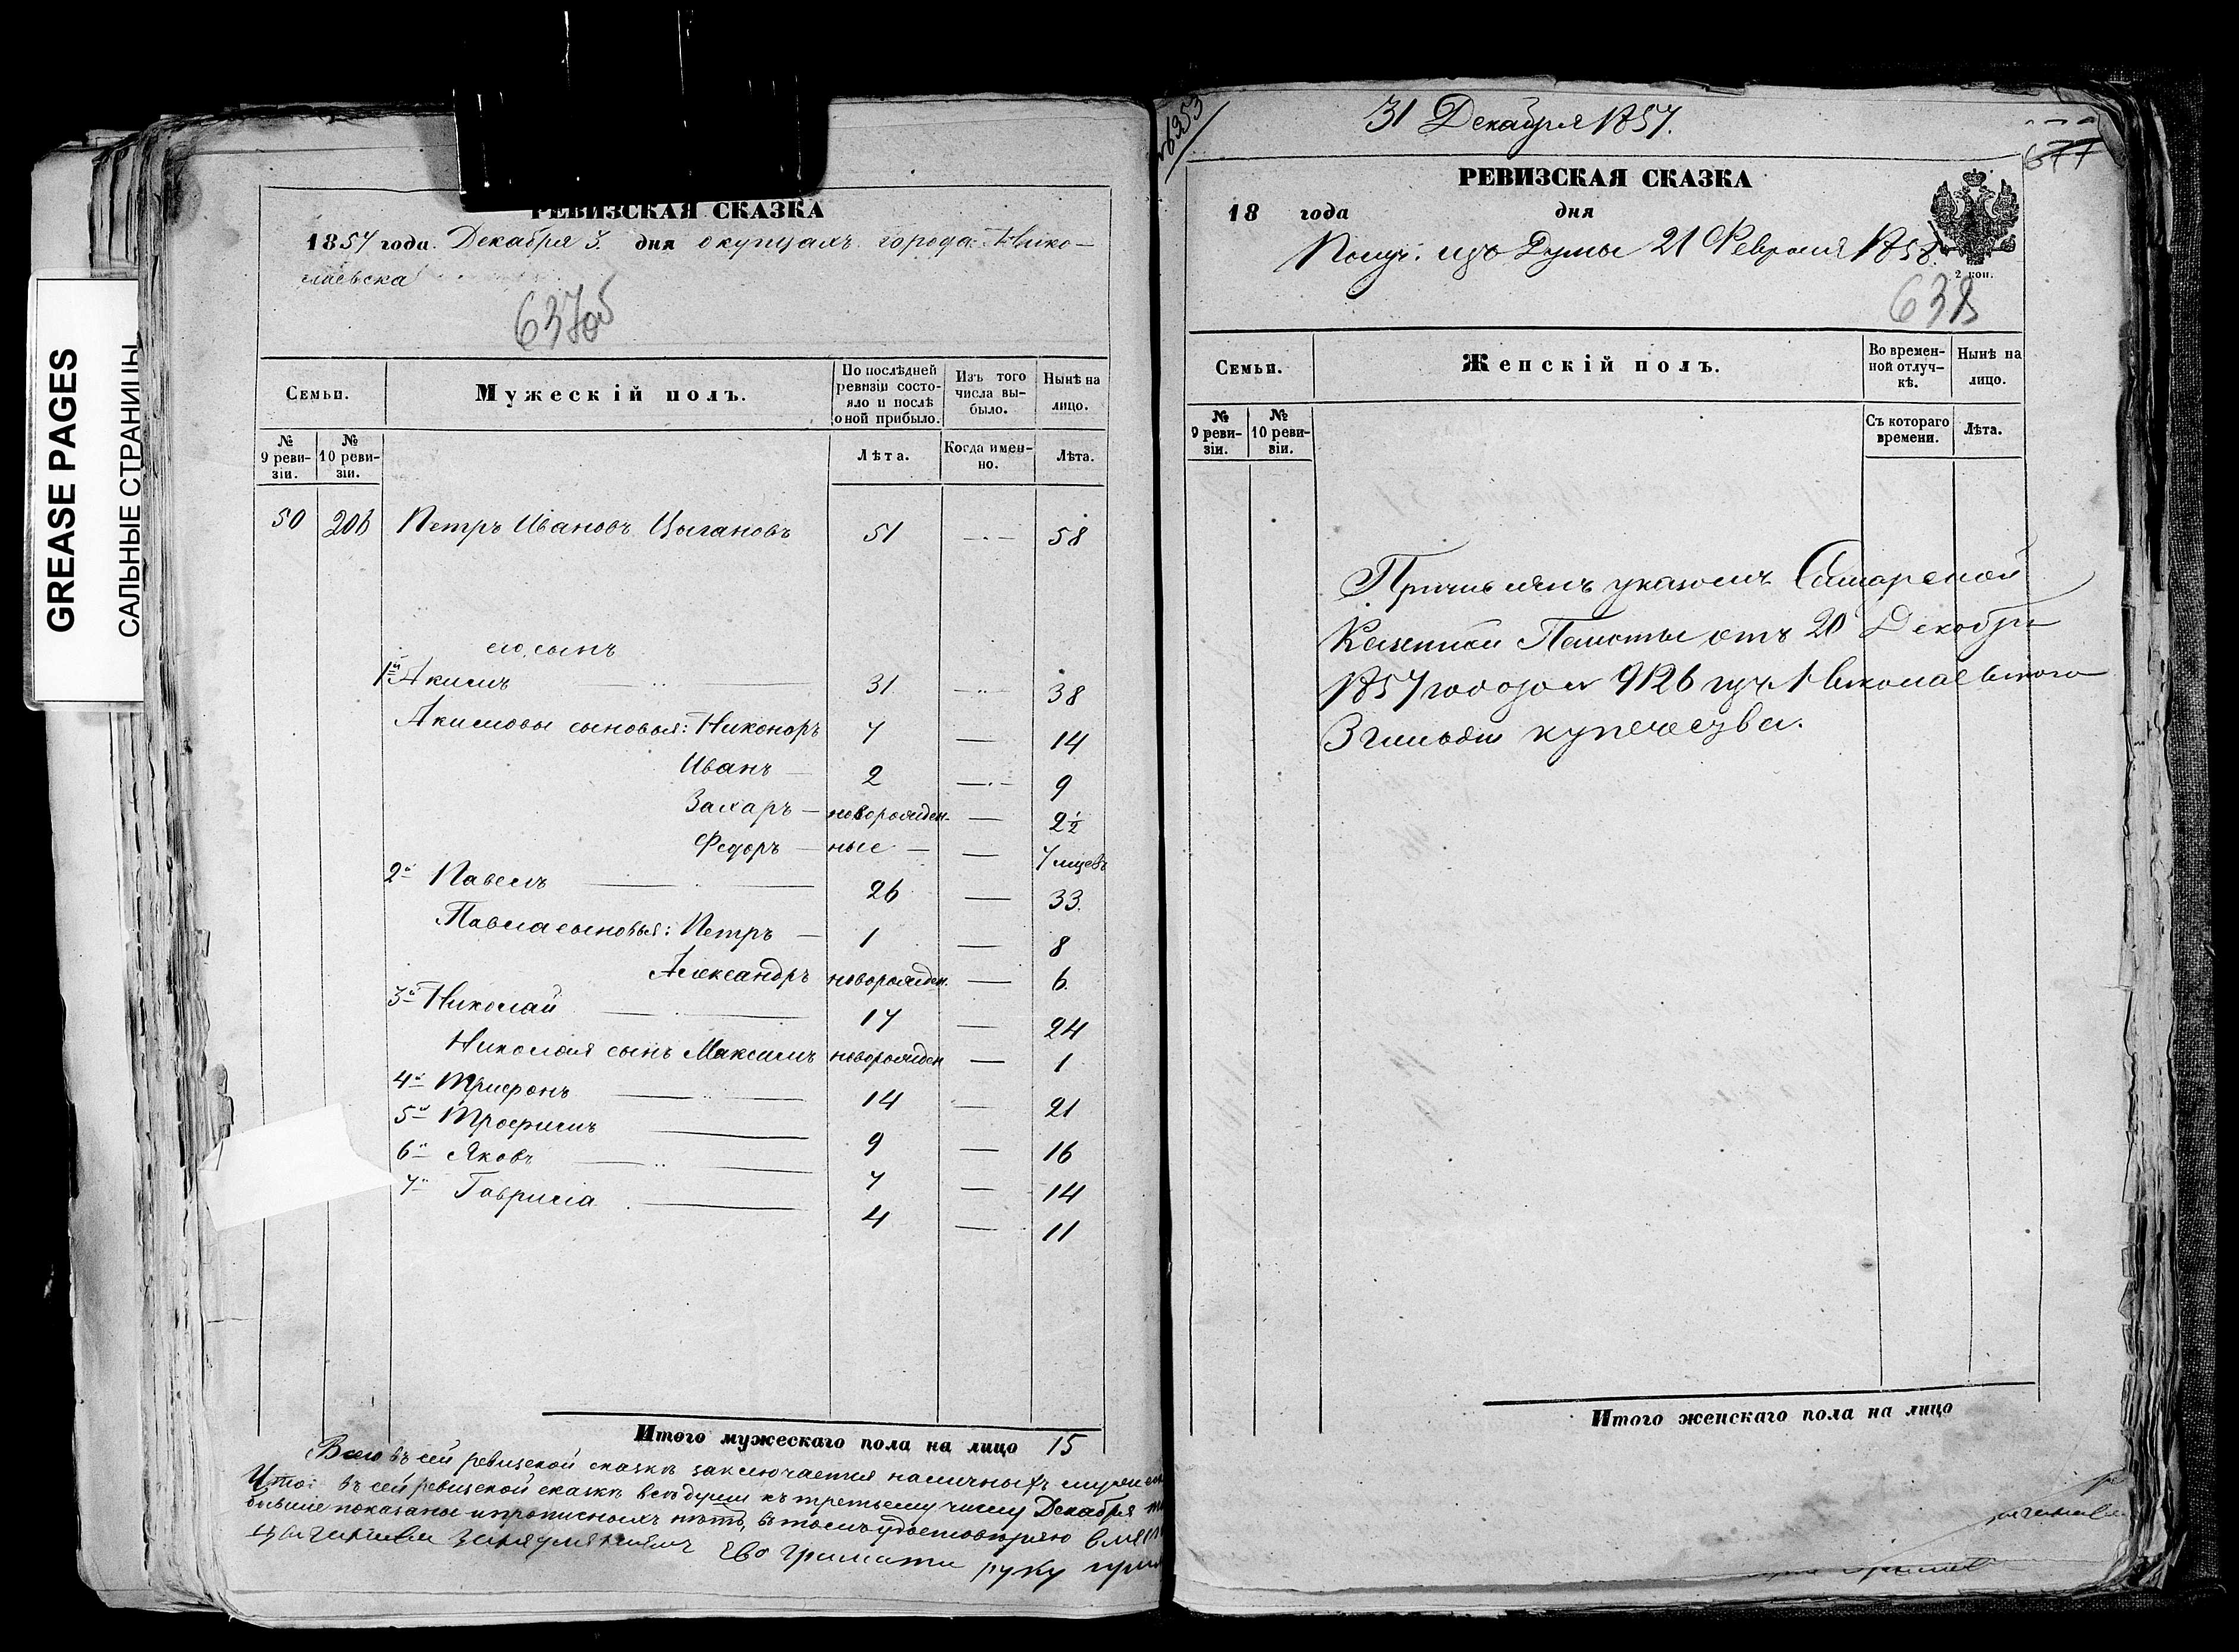 GREASE PAGES
САЛЬНЫЕ СТРАНИЦЫ
РЕВИЗСКАЯ СКАЗКА
1857 года Декабря 3. дня о купцахъ города Нико-
лаевска
637об
Семьи.
Мужескій полъ.
По послѣдней ревизіи состо-яло и послѣ оной прибыло.
Изъ того числа вы-было.
Нынѣ на лицо.
№ 9 реви-зіи.
№ 10 реви-зіи.
Лѣта.
Когда имен-но.
Лѣта.
50 206 Петръ Ивановъ Цыгановъ 51 — 58
его сынъ
1й Акимъ 31 — 38
Акимовы сыновья: Никоноръ 7 — 14
Иванъ — 2 — 9
Захаръ — новорожден- — 2½
Федоръ — ные — — 7 мцевъ
2й Павелъ 26 — 33
Павла сыновья: Петръ — 1 — 8
Александръ новорожден. — 6
3й Николай 17 — 24
Николая сынъ Максимъ новорожден — 1
4й Трифонъ 14 — 21
5й Трофимъ 9 — 16
6й Яковъ 7 — 14
7й Гаврила 4 — 11
Итого мужескаго пола на лицо 15
Всего въ сей ревизской сказкѣ заключается наличныхъ
Что въ сей ревизской сказкѣ всѣ души къ третьему числу Декабря
бывшие показаны и прописныхъ нѣтъ, въ томъ удостовѣряю
Ево грамоти руку
31 Декабря 1857.
677
РЕВИЗСКАЯ СКАЗКА
18 года дня
Получ: изъ Думы 21 Февраля 1858
2 коп.
638
Семьи.
Женскій полъ.
Во времен-ной отлуч-кѣ.
Нынѣ на лицо.
№ 9 реви-зіи.
№ 10 реви-зіи.
Съ котораго времени.
Лѣта.
Причисленъ указомъ Самарской
Казенной Палаты отъ 20 Декабря
1857 года за № 9126 изъ Николаевского
3 гильдіи купечества.
Итого женскаго пола на лицо